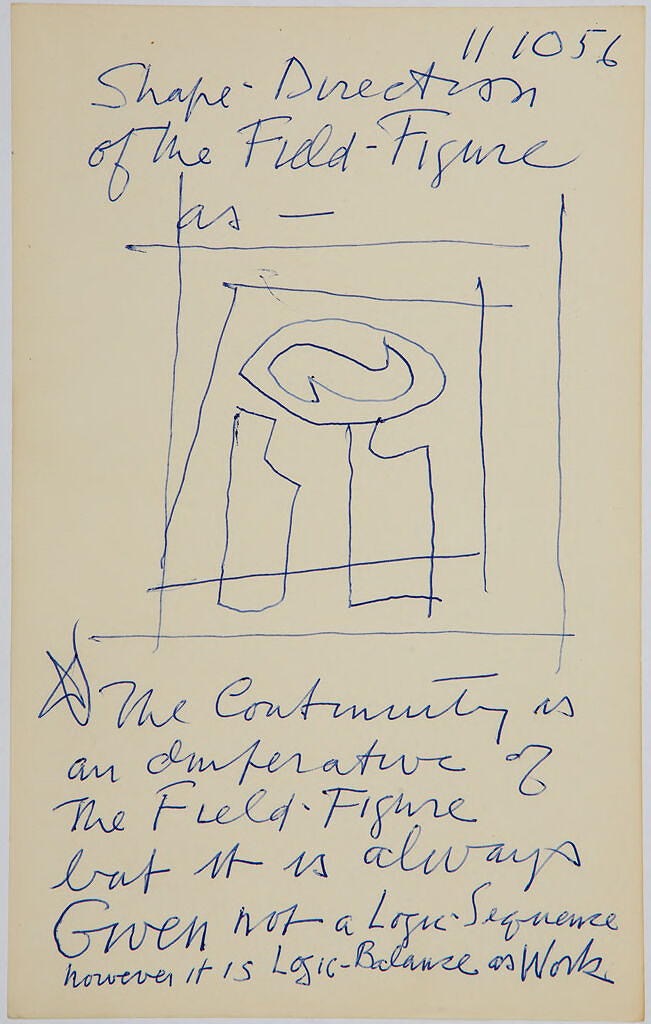 11 10 56
Shape-Direction
of the Field-Figure
as —
The Continuity is
an imperative of
The Field-Figure
but it is always
Given not a Logic-Sequence
however it is Logic-Balance as Work